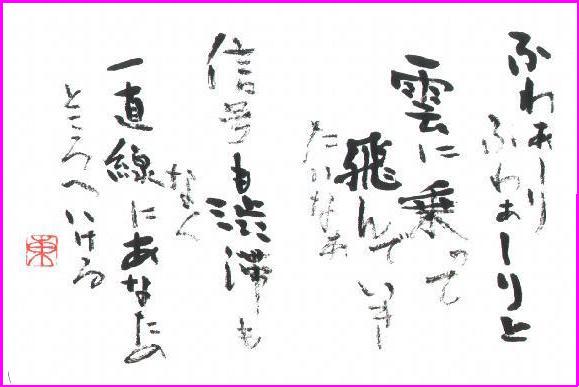 ふわぁーり
ふわぁーりと
雲に乗って
飛んでいき
たいなぁ
信号も渋滞も
なく
一直線にあなたの
ところへいける
東